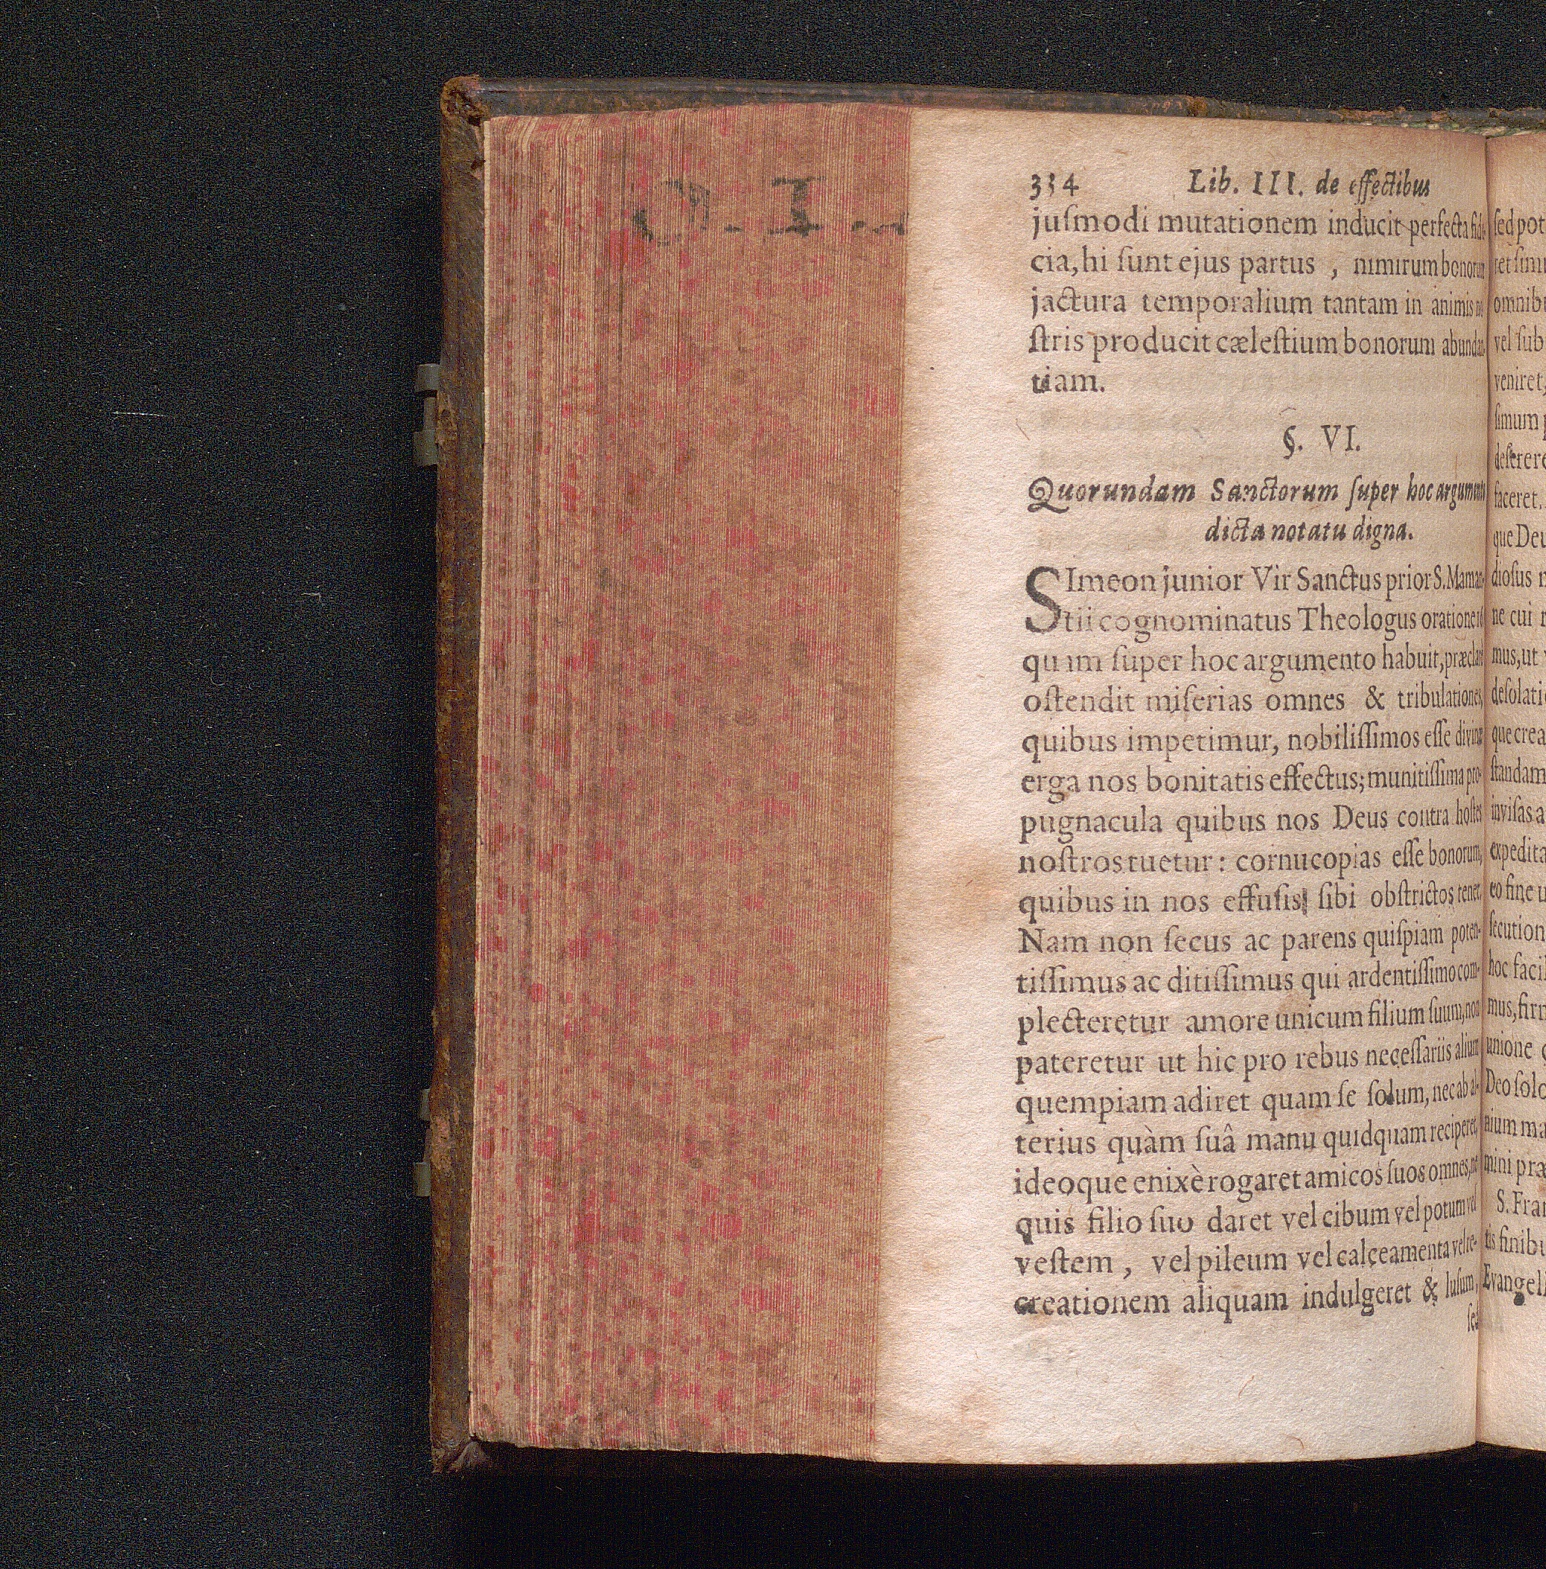 O.I.
334 Lib. III. de effectibus
juſmodi mutationem inducit perfecta fidu-
cia, hi ſunt ejus partus , nimirum bonorum
jactura temporalium tantam in animis no-
ſtris producit cæleſtium bonorum abundan-
tiam.
§. VI.
Quorundam Sanctorum ſuper hoc argumento
dicta notatu digna.
SImeon junior Vir Sanctus prior S. Maman-
tii cognominatus Theologus oratione
quam ſuper hoc argumento habuit, præclarè
oſtendit miſerias omnes & tribulationes,
quibus impetimur, nobiliſſimos eſſe divinæ
erga nos bonitatis effectus; munitiſſima pro-
pugnacula quibus nos Deus contra hoſtes
noſtros tuetur : cornucopias eſſe bonorum,
quibus in nos effuſis ſibi obſtrictos tenet.
Nam non ſecus ac parens quiſpiam poten-
tiſſimus ac ditiſſimus qui ardentiſſimo com-
plecteretur amore unicum filium ſuum, non
pateretur ut hic pro rebus neceſſariis alium
quempiam adiret quam ſe ſolum, nec ab al-
terius quàm ſuâ manu quidquam reciperet,
ideoque enixè rogaret amicos ſuos omnes, ne
quis filio ſuo daret vel cibum vel potum vel
veſtem , vel pileum vel calceamenta vel re-
creationem aliquam indulgeret & luſum,
ſed
ſed pot
omnib
vel ſub
veniret,
ſimum
deſerere
faceret.
que Deu
dioſus
ne cui
mus, ut
deſolati
que crea
ſtandam
inviſas a
expedita
eo fine u
ſecution
hoc facil
mus, firm
unione
Deo ſolo
nium ma
mini præ
S. Fran
tis finibu
Evangeli